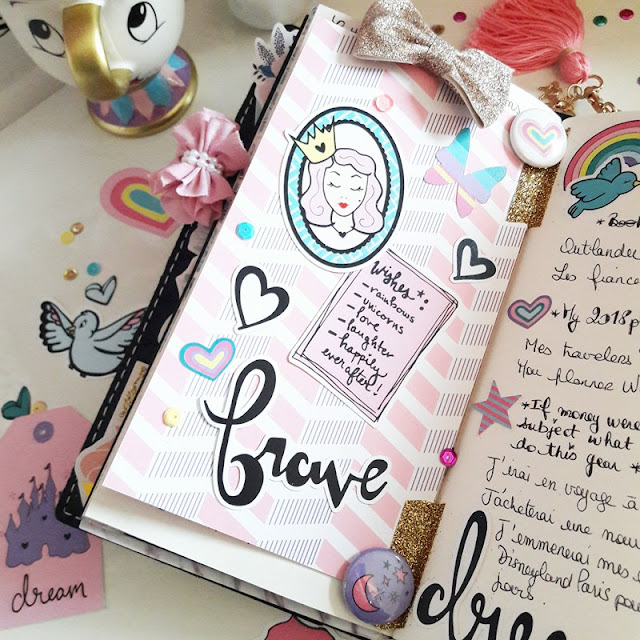 Wishes *:
- rainbows
- unicorns
- love
- laughter
- happily
ever after!
brave
dream
Outlander
Les fiancé
* My 2018 p
Mes travelers
You planner W
* If money were
subject what
do this year *
J'irai en voyage à
J'achèterai une nou
J'emmenerai mes
Disneyland Paris pou
jours.